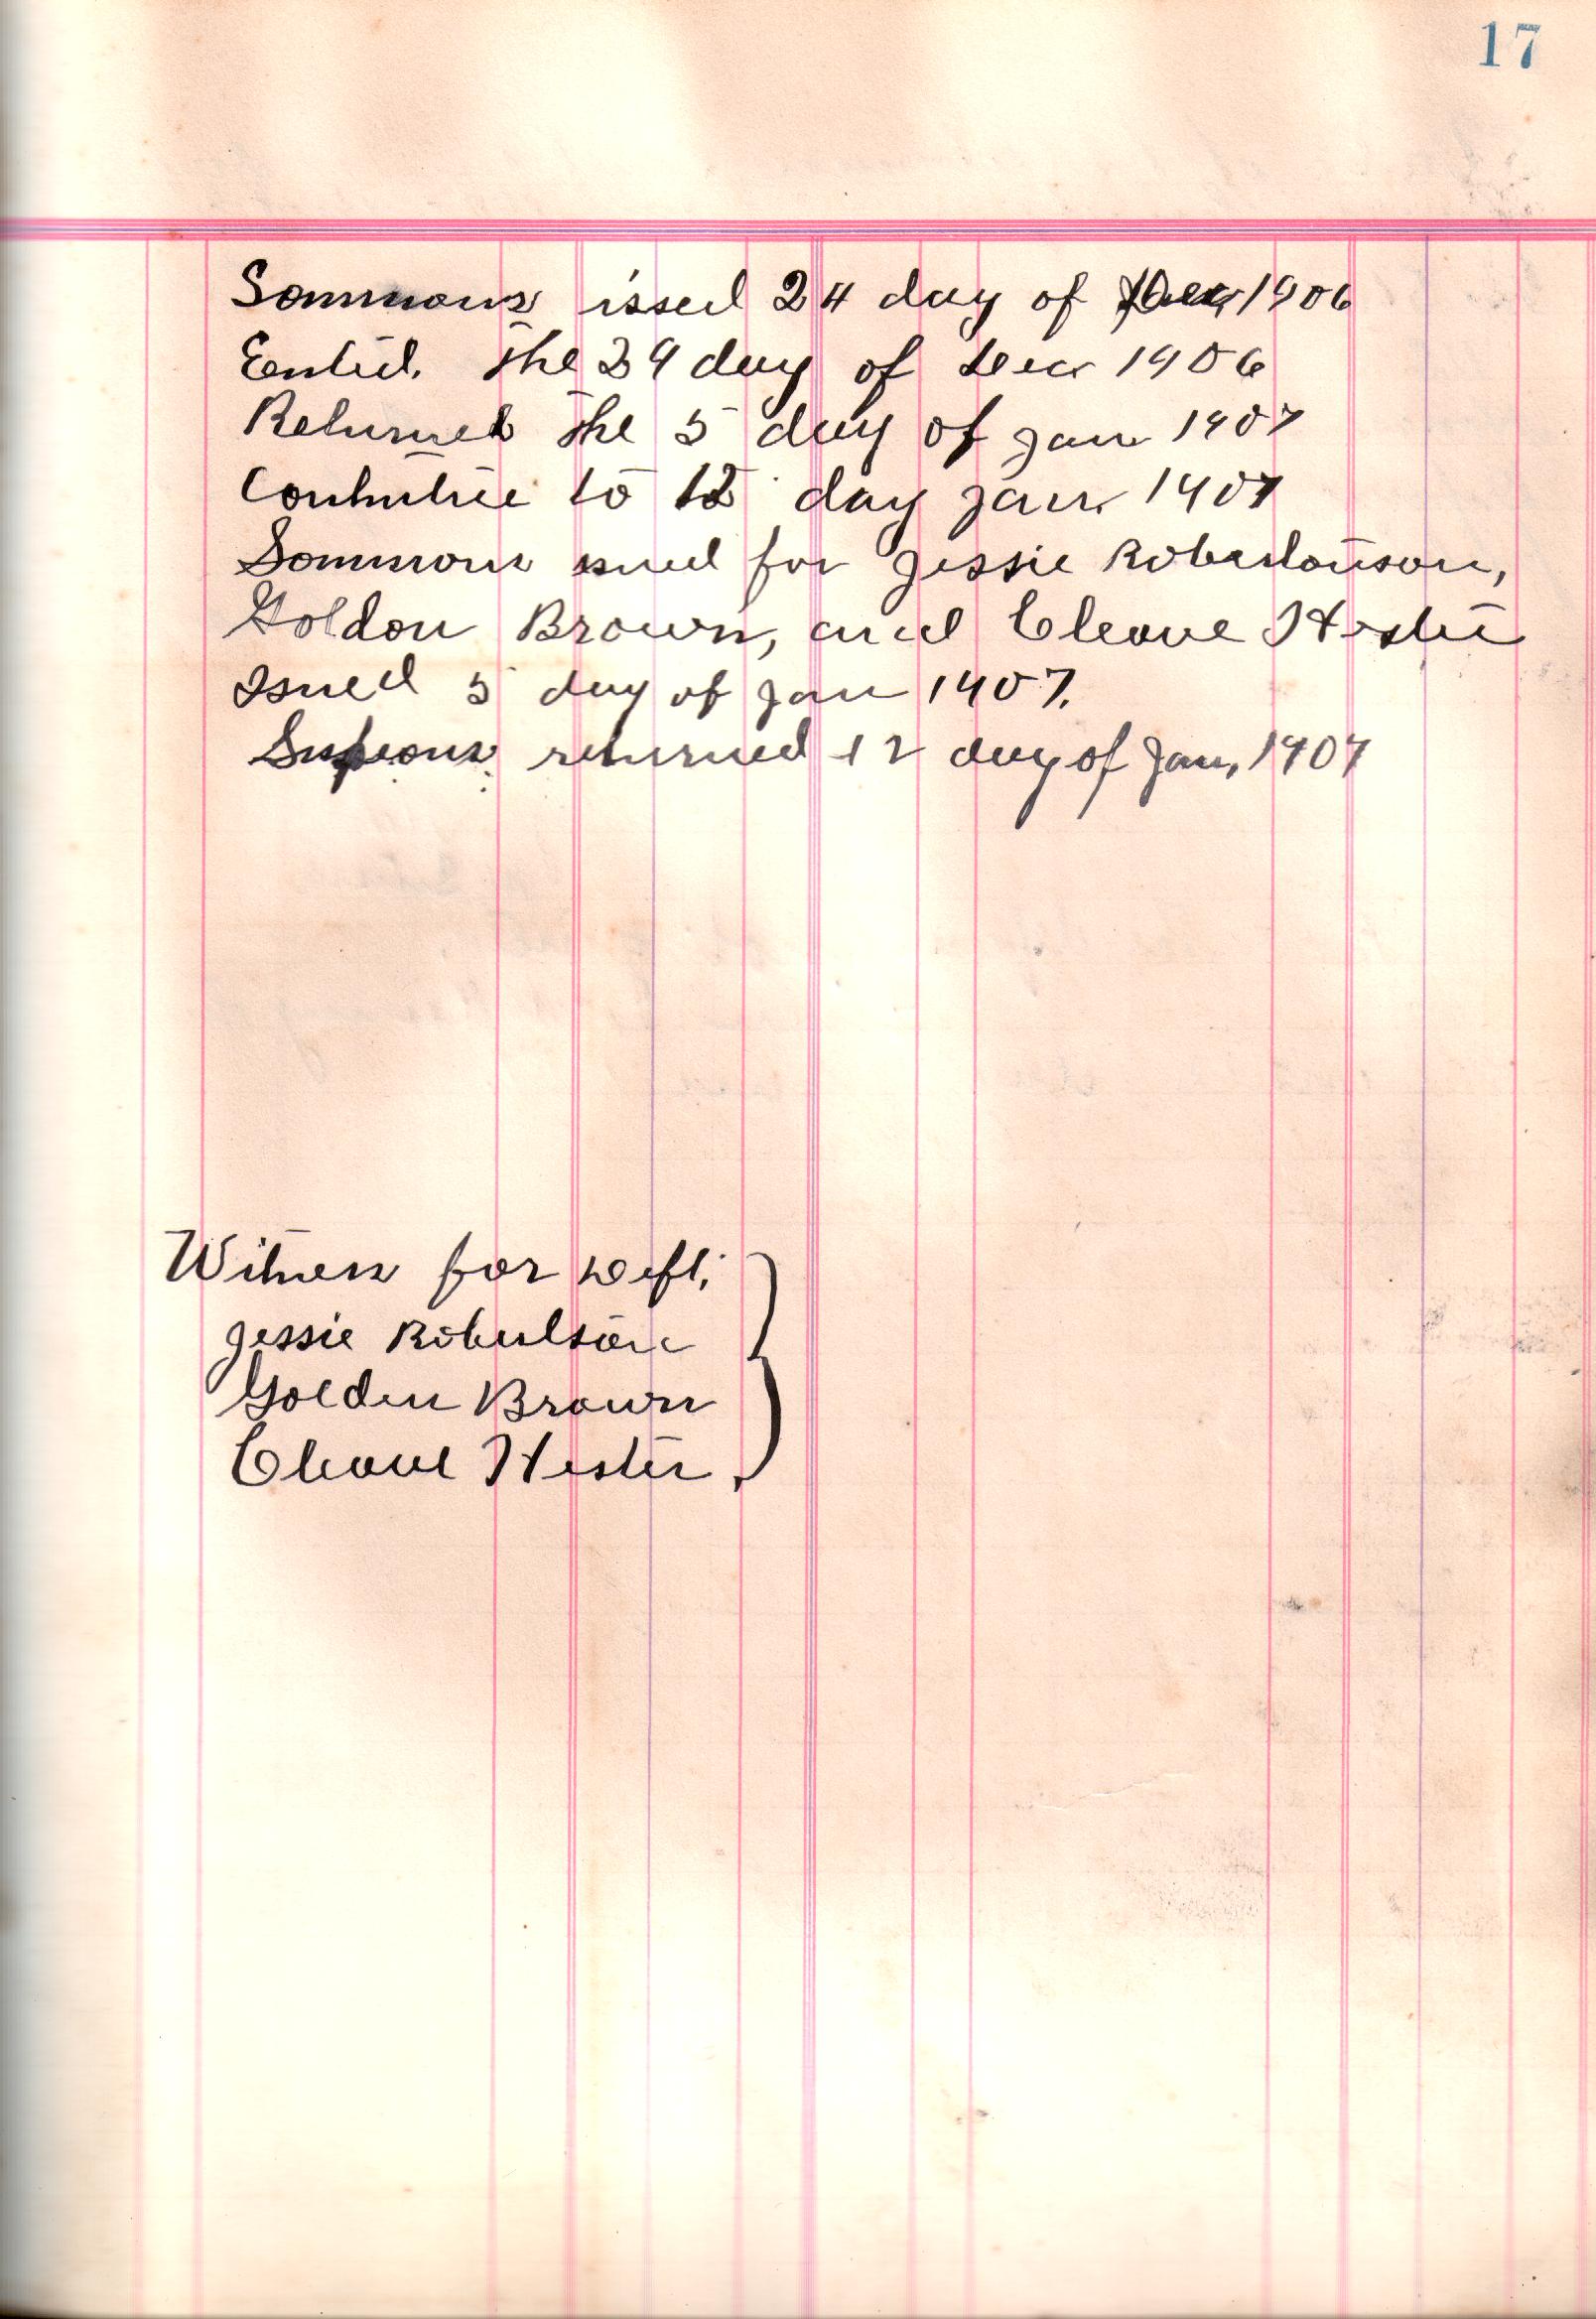 17
Sommons issed 24 day of Dec 1906
Entid. The 29 day of Dec 1906
Returned The 5 day of Jan 1907
Contintie to 12 day Jan. 1907
Sommons issued for Jessie Robertonson,
Goldon Brown, and Cleave Hester
Issued 5 day of Jan 1907.
returned 12 day of Jan, 1907
Witness for Deft;
Jessie Robertson
Golden Brown
Cleave Hester.